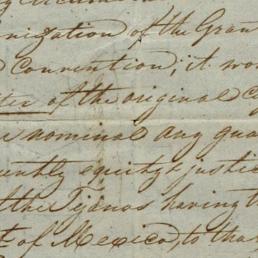 nization of the Gran
Convention; it wo
of the original C
nominal any gua
ently equity & justic
the Tejanos having t
of Mexico, to tha